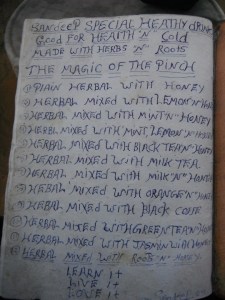 SANDEEP SPECIAL HEATHY DRINK
GOOD FOR HEALTH 'N' COLD
MADE WITH HERBS 'N' ROOTS
THE MAGIC OF THE PINCH
PLAIN HERBAL WITH HONEY
HERBAL MIXED WITH LEMON 'N' HONEY
HERBAL MIXED WITH MINT 'N' HONEY
HERBL MIXED WITH MINT LEMON 'N' HONEY
HERBAL MIXED WITH BLACK TEA 'N' HONEY
HERBAL MIXED WITH MILK TEA
HERBAL MIXED WITH MILK 'N' HONEY
HERBAL MIXED WITH ORANGE 'N' HONEY
HERBAL MIXED WITH BLACK COFFE
HERBAL MIXED WITH GREEN TEA 'N' HONEY
HERBAL MIXED WITH JASMIN WITH HONEY
HERBAL MIXED WITH ROOTS 'N' HONEY
LEARN IT
LIVE IT
LOVE IT